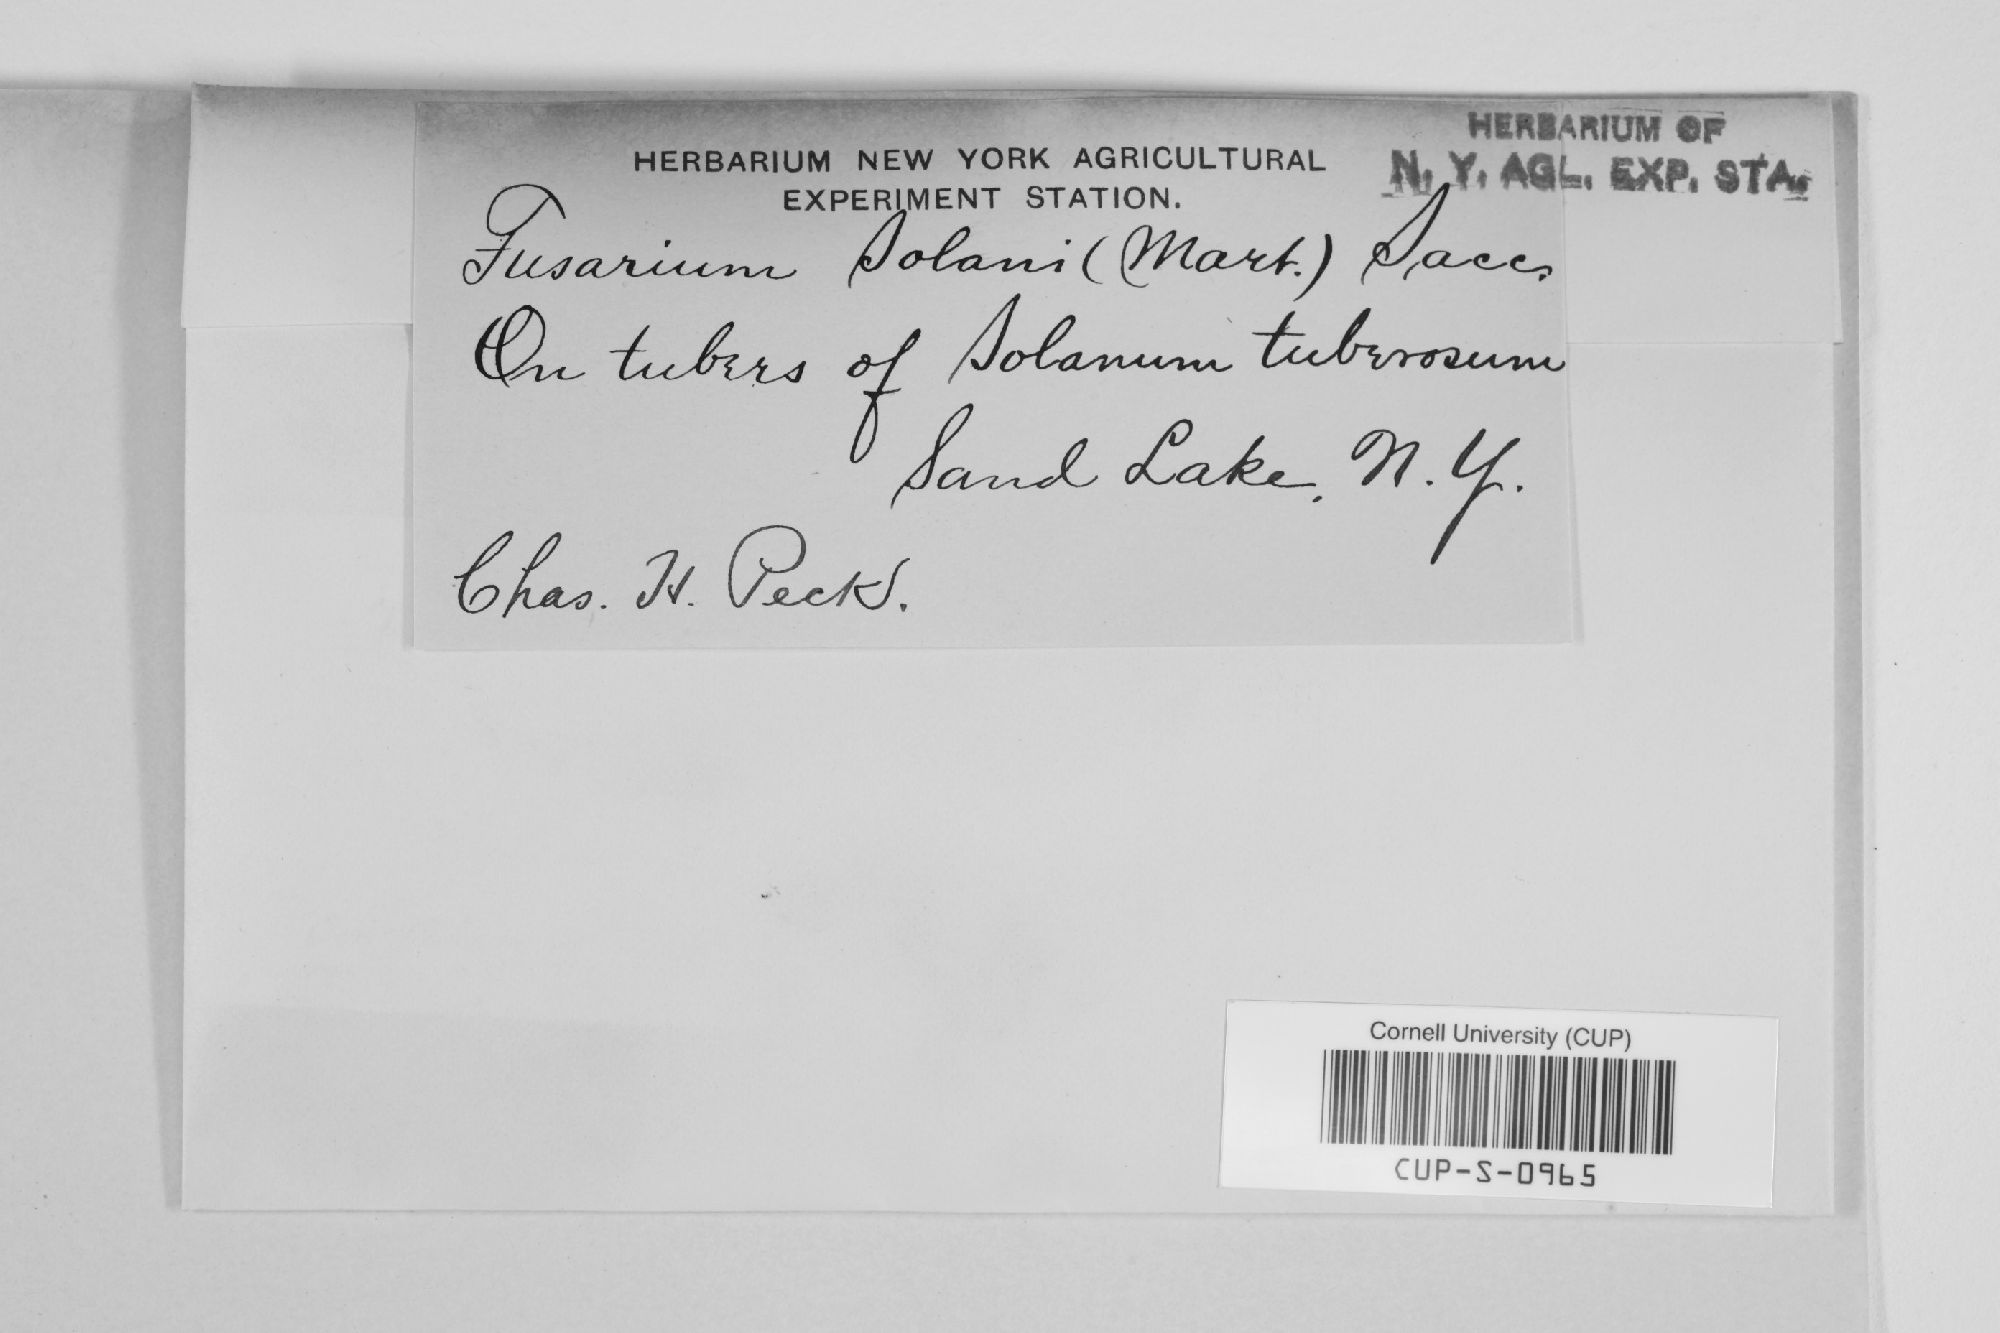 HERBARIUM OF
N. Y. AGL. EXP. STA.
HERBARIUM NEW YORK AGRICULTURAL
EXPERIMENT STATION.
Fusarium Solani (Mart.) Sacc.
On tubers of Solanum tuberosum
Sand Lake, N. Y.
Chas. H. Peck.
Cornell University (CUP)
CUP-S-0965